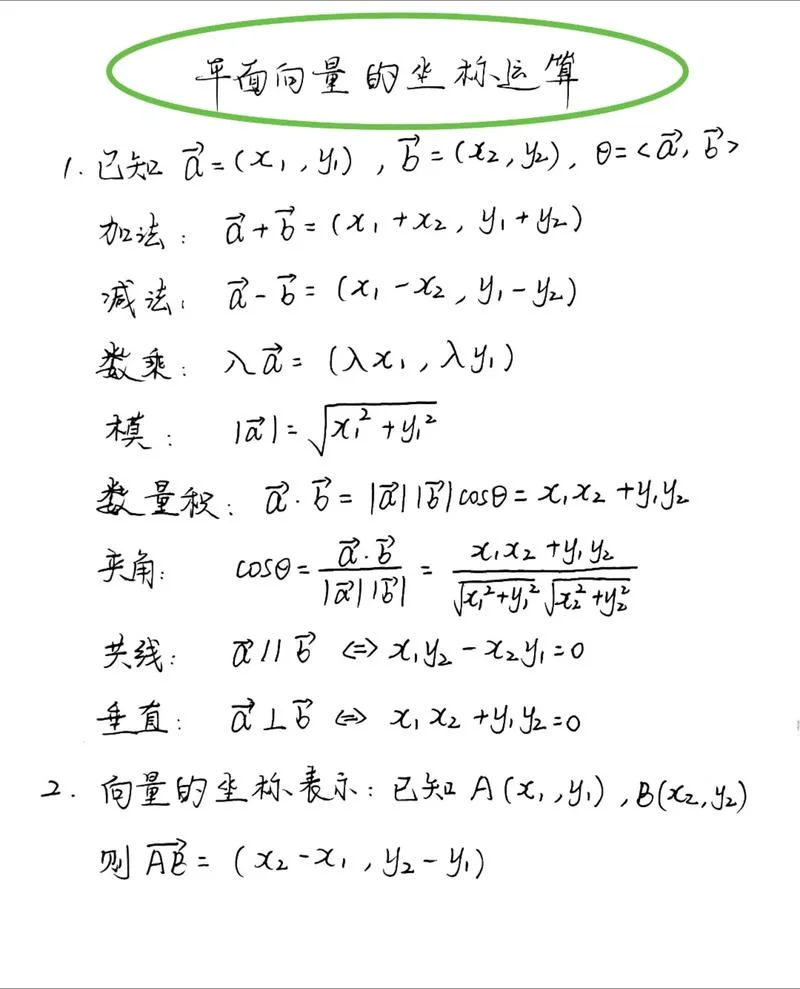 平面向量的坐标运算
1. 已知 $\vec{a}=(x_1, y_1)$, $\vec{b}=(x_2, y_2)$, $\theta=<\vec{a}, \vec{b}>$
加法: $\vec{a}+\vec{b}=(x_1+x_2, y_1+y_2)$
减法: $\vec{a}-\vec{b}=(x_1-x_2, y_1-y_2)$
数乘: $\lambda\vec{a}=(\lambda x_1, \lambda y_1)$
模: $|\vec{a}|=\sqrt{x_1^2+y_1^2}$
数量积: $\vec{a}\cdot\vec{b}=|\vec{a}||\vec{b}|\cos\theta=x_1x_2+y_1y_2$
夹角: $\cos\theta=\frac{\vec{a}\cdot\vec{b}}{|\vec{a}||\vec{b}|}=\frac{x_1x_2+y_1y_2}{\sqrt{x_1^2+y_1^2}\sqrt{x_2^2+y_2^2}}$
共线: $\vec{a}//\vec{b} \Leftrightarrow x_1y_2-x_2y_1=0$
垂直: $\vec{a}\perp\vec{b} \Leftrightarrow x_1x_2+y_1y_2=0$
2. 向量的坐标表示: 已知 $A(x_1, y_1)$, $B(x_2, y_2)$
则 $\overrightarrow{AB}=(x_2-x_1, y_2-y_1)$